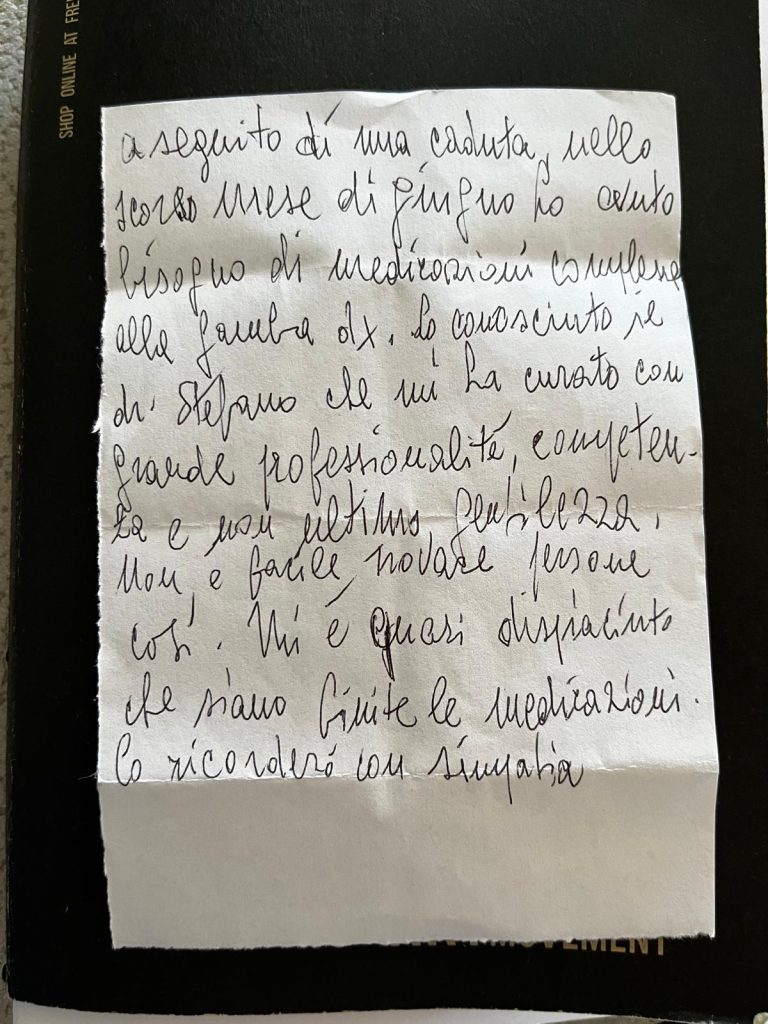 SHOP ONLINE AT FRE
a seguito di una caduta, nello
scorso mese di giugno ho avuto
bisogno di medicazioni complesse
alla gamba dx. ho conosciuto il
dr. Stefano che mi ha curato con
grande professionalità, competen-
za e non ultimo, gentilezza.
Non è facile trovare persone
così. Mi è quasi dispiaciuto
che siano finite le medicazioni.
lo ricorderò con simpatia
MOVEMENT